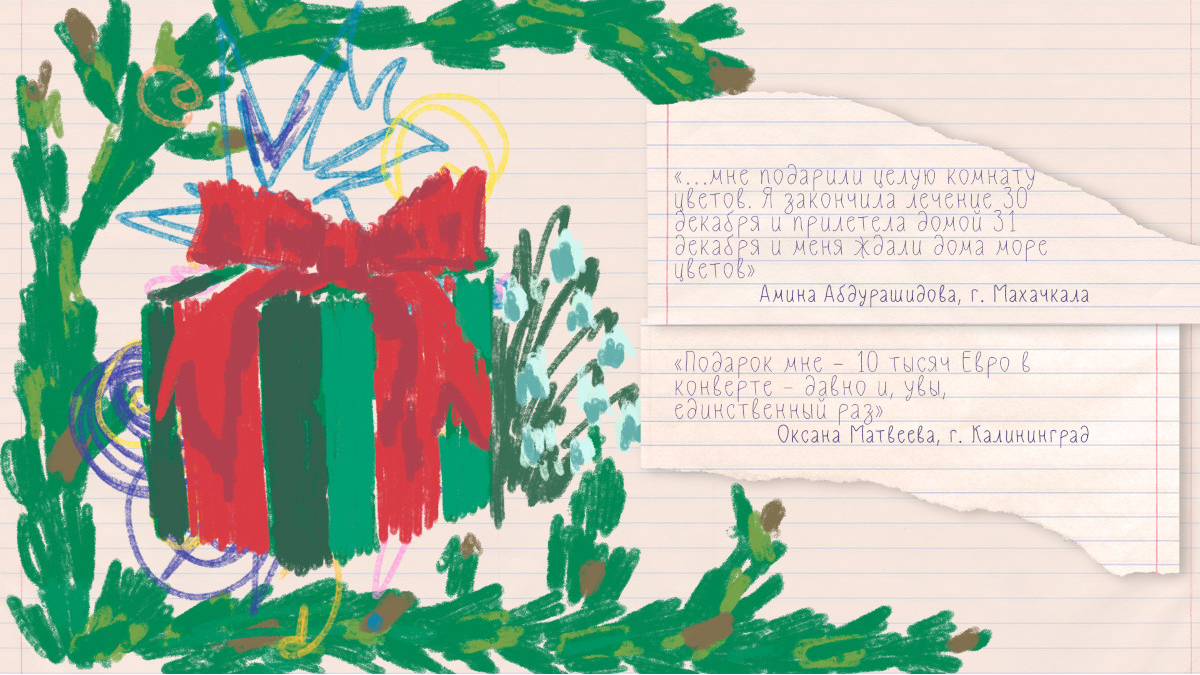 «...мне подарили целую комнату
цветов. Я закончила лечение 30
декабря и прилетела домой 31
декабря и меня ждали дома море
цветов»
Амина Абдурашидова, г. Махачкала
«Подарок мне – 10 тысяч Евро в
конверте – давно и, увы,
единственный раз»
Оксана Матвеева, г. Калининград